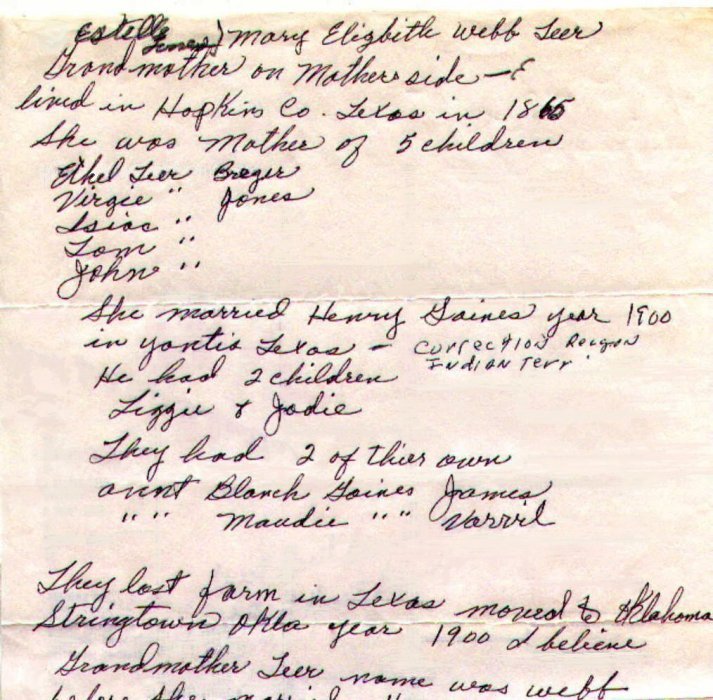 Estelle Jones) Mary Elizbith Webb Teer
Grandmother on Mothers side - E
lived in Hopkins Co. Texas in 1865
She was Mother of 5 children
Ethel Teer Breger
Virgie " Jones
Isiac "
Tom "
John "
She married Henry Gaines year 1900
in yantis Texas - Correction Reagan
Indian Terr.
He had 2 children
Lizzie & Jodie
They had 2 of thier own
aunt Blanch Gaines James
" " Maudie " " Varvil
They lost farm in Texas moved to Oklahoma
Stringtown Okla year 1900 I believe
Grandmother Teer name was Webb
before she married